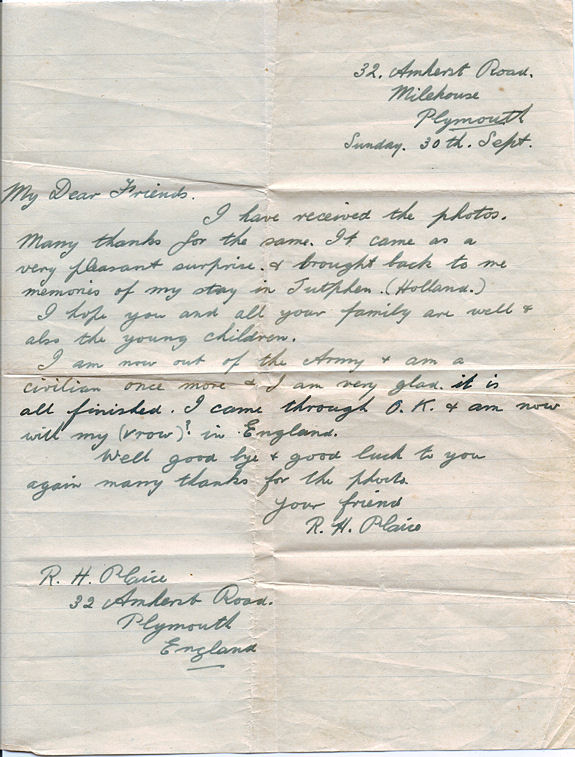 32. Amherst Road.
Milehouse
Plymouth
Sunday. 30th. Sept.
My Dear Friends.
I have received the photos.
Many thanks for the same. It came as a
very pleasant surprise. & brought back to me
memories of my stay in Tutphen. (Holland.)
I hope you and all your family are well &
also the young children.
I am now out of the Army & am a
civilian once more & I am very glad. it is
all finished. I came through O.K. & am now
with my (vrow)? in England.
Well good bye & good luck to you
again many thanks for the photos
Your friend
R. H. Plaice
R. H. Plaice
32 Amherst Road.
Plymouth
England